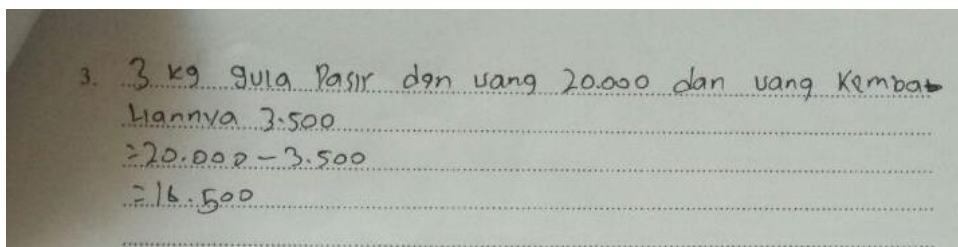 3. 3 kg gula Pasir dgn uang 20.000 dan uang Kemba
liannya 3.500
=20.000-3.500
=16.500